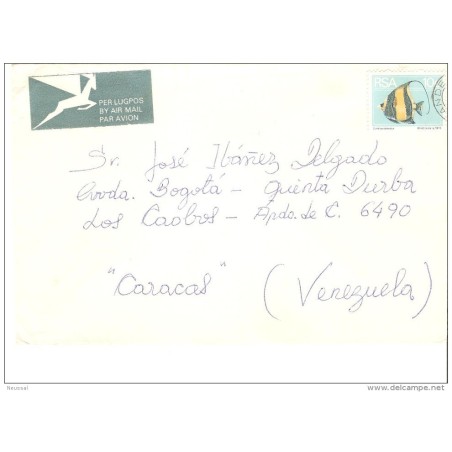 PER LUGPOS
BY AIR MAIL
PAR AVION
RSA 10c
Sr. José Ibáñez Delgado
Avda. Bogotá - Quinta Durba
Los Caobos - Apdo. de C. 6490
"Caracas" (Venezuela)
Neussal
www.delcampe.net